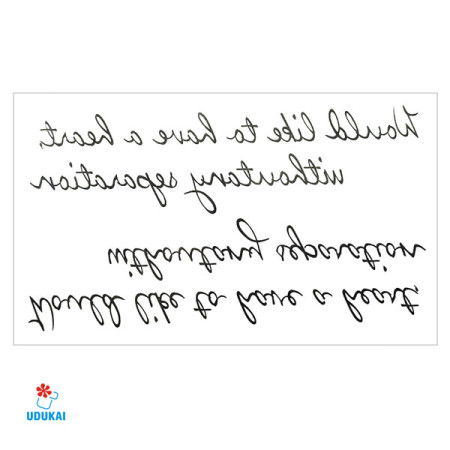 Would like to have a heart,
withoutany separation
withoutany separation
Would like to have a heart,
UDUKAI